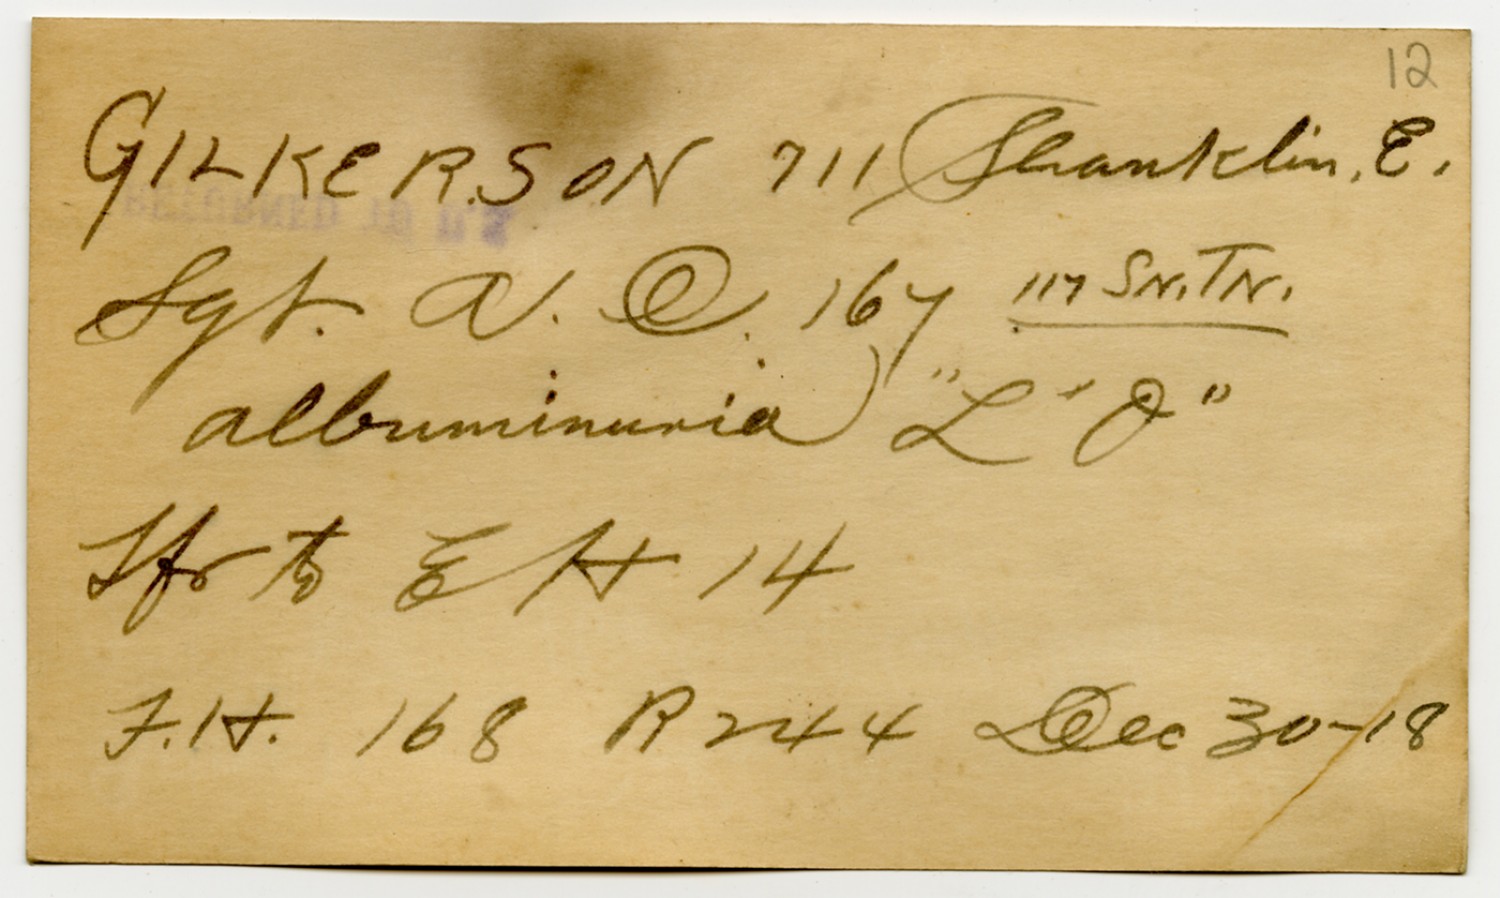 12
GILKERSON 711 Shanklin, E.
Sgt. A. C. 167 117 SN. TN.
albuminuria) "L" "O"
Tfr to E H 14
F.H. 168 R244 Dec 30-18